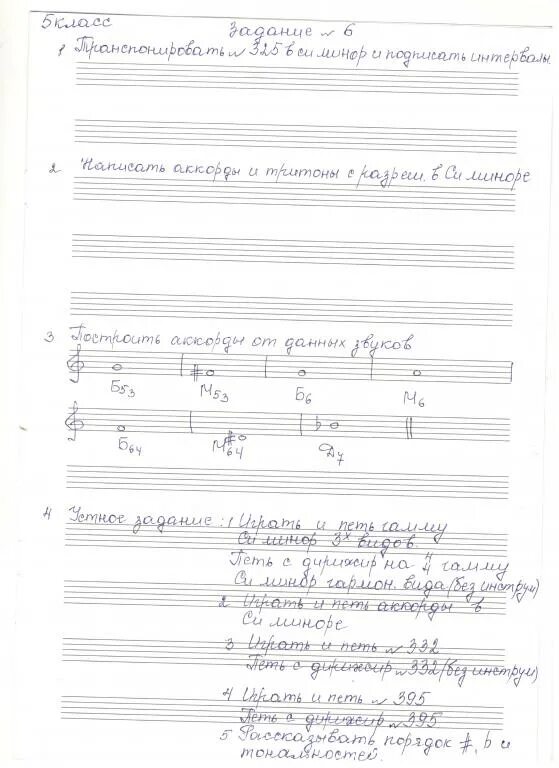 5 класс
Задание № 6
1 Транспонировать № 325 в си минор и подписать интервалы
2 Написать аккорды и тритоны с разреш. в Си миноре
3 Построить аккорды от данных звуков
Б53 М53 Б6 М6
Б64 М64 Д7
4 Устное задание: 1 Играть и петь гамму
Си минор 3х видов.
Петь с дирижир на 4/4 гамму
Си минор гармон. вида (без инструм)
2 Играть и петь аккорды в
Си миноре
3 Играть и петь № 332
Петь с дирижир № 332 (без инструм)
4 Играть и петь № 395
Петь с дирижир № 395
5 Рассказывать порядок #, ♭ и
тональностей.